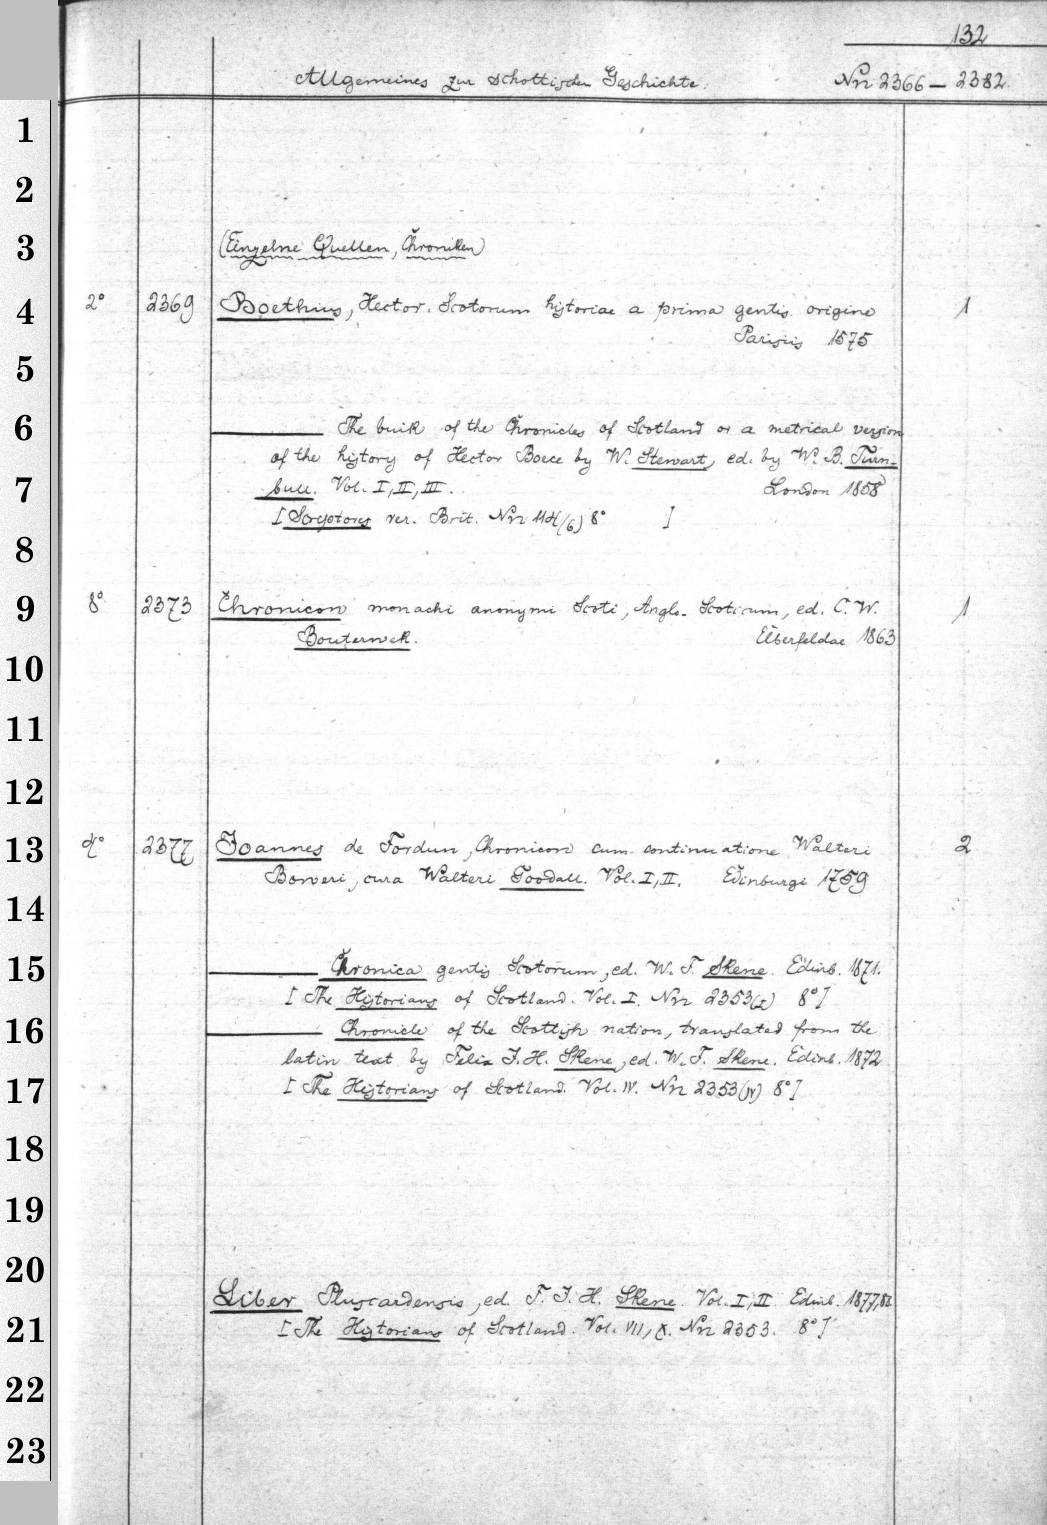 132
Allgemeines zur schottischen Geschichte. Nrr 2366 — 2382.
1
2
3 (Einzelne Quellen, Chroniken)
4 2° 2369 Boethius, Hector. Scotorum historiae a prima gentis origine 1
Parisiis 1575
5
6 ——— The buik of the Chronicles of Scotland or a metrical version
of the history of Hector Boece by W. Stewart, ed. by W. B. Turn-
7 bull. Vol. I, II, III. London 1858
[Scriptores rer. Brit. Nrr (6) 8° ]
8
9 8° 2373 Chronicon monachi anonymi Scoti, Anglo-Scoticum, ed. C. W. 1
Bouterwek. Elberfeldae 1863
10
11
12
13 4° 2377 Joannes de Fordun, Chronicon cum continuatione Walteri 2
Boweri, cura Walteri Goodall. Vol. I, II. Edinburgi 1759
14
15 ——— Chronica gentis Scotorum, ed. W. F. Skene. Edinb. 1871.
[The Historians of Scotland. Vol. I. Nrr 2353(I) 8°]
16 ——— Chronicle of the Scottish nation, translated from the
latin text by Felix J. H. Skene, ed. W. F. Skene. Edinb. 1872
17 [The Historians of Scotland. Vol. IV. Nrr 2353(IV) 8°]
18
19
20
Liber Pluscardensis, ed. F. J. H. Skene. Vol. I, II Edinb. 1877,80.
21 [The Historians of Scotland. Vol. VII, X. Nrr 2353. 8°]
22
23